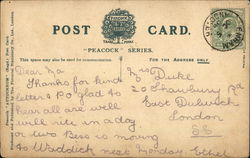 POST CARD
"PEACOCK" SERIES.
This space may also be used for communication.
FOR THE ADDRESS ONLY
Dear Ma
Thanks for kind
letter & P.O glad to
hear all are well
will write in a day
or two Bess is moving
to Waddick next Monday. Ethel
Mrs Duke
20 Shawbury Rd
East Dulwich
London
SE